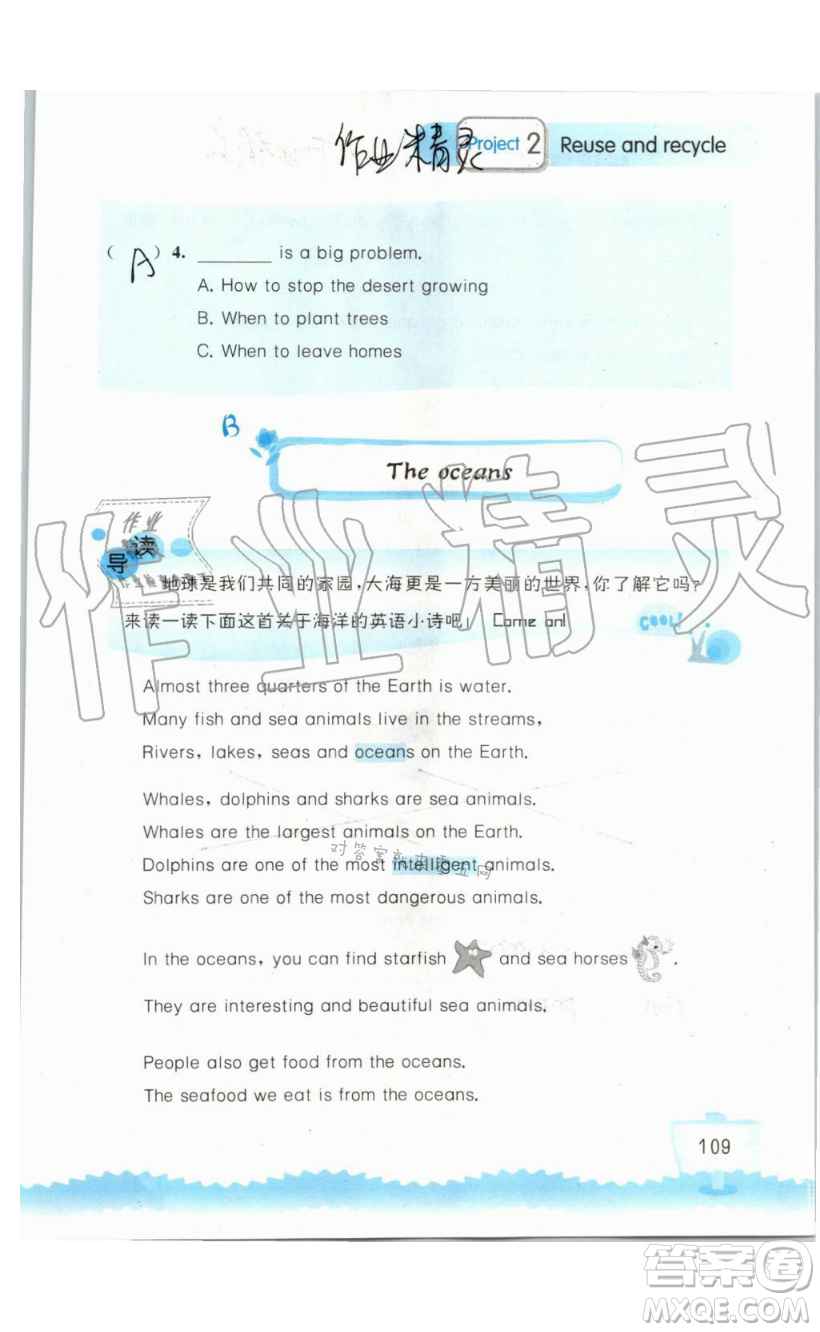 作业精灵
Project 2 Reuse and recycle
( A ) 4. ________ is a big problem.
A. How to stop the desert growing
B. When to plant trees
C. When to leave homes
B
The oceans
作业精灵
作业
导读
地球是我们共同的家园,大海更是一方美丽的世界,你了解它吗?
来读一读下面这首关于海洋的英语小诗吧! Come on!
COOL!
Almost three quarters of the Earth is water.
Many fish and sea animals live in the streams,
Rivers, lakes, seas and oceans on the Earth.
Whales, dolphins and sharks are sea animals.
Whales are the largest animals on the Earth.
对答案就来零五网
Dolphins are one of the most intelligent animals.
Sharks are one of the most dangerous animals.
In the oceans, you can find starfish and sea horses .
They are interesting and beautiful sea animals.
People also get food from the oceans.
The seafood we eat is from the oceans.
109
答案圈
MXQE.COM